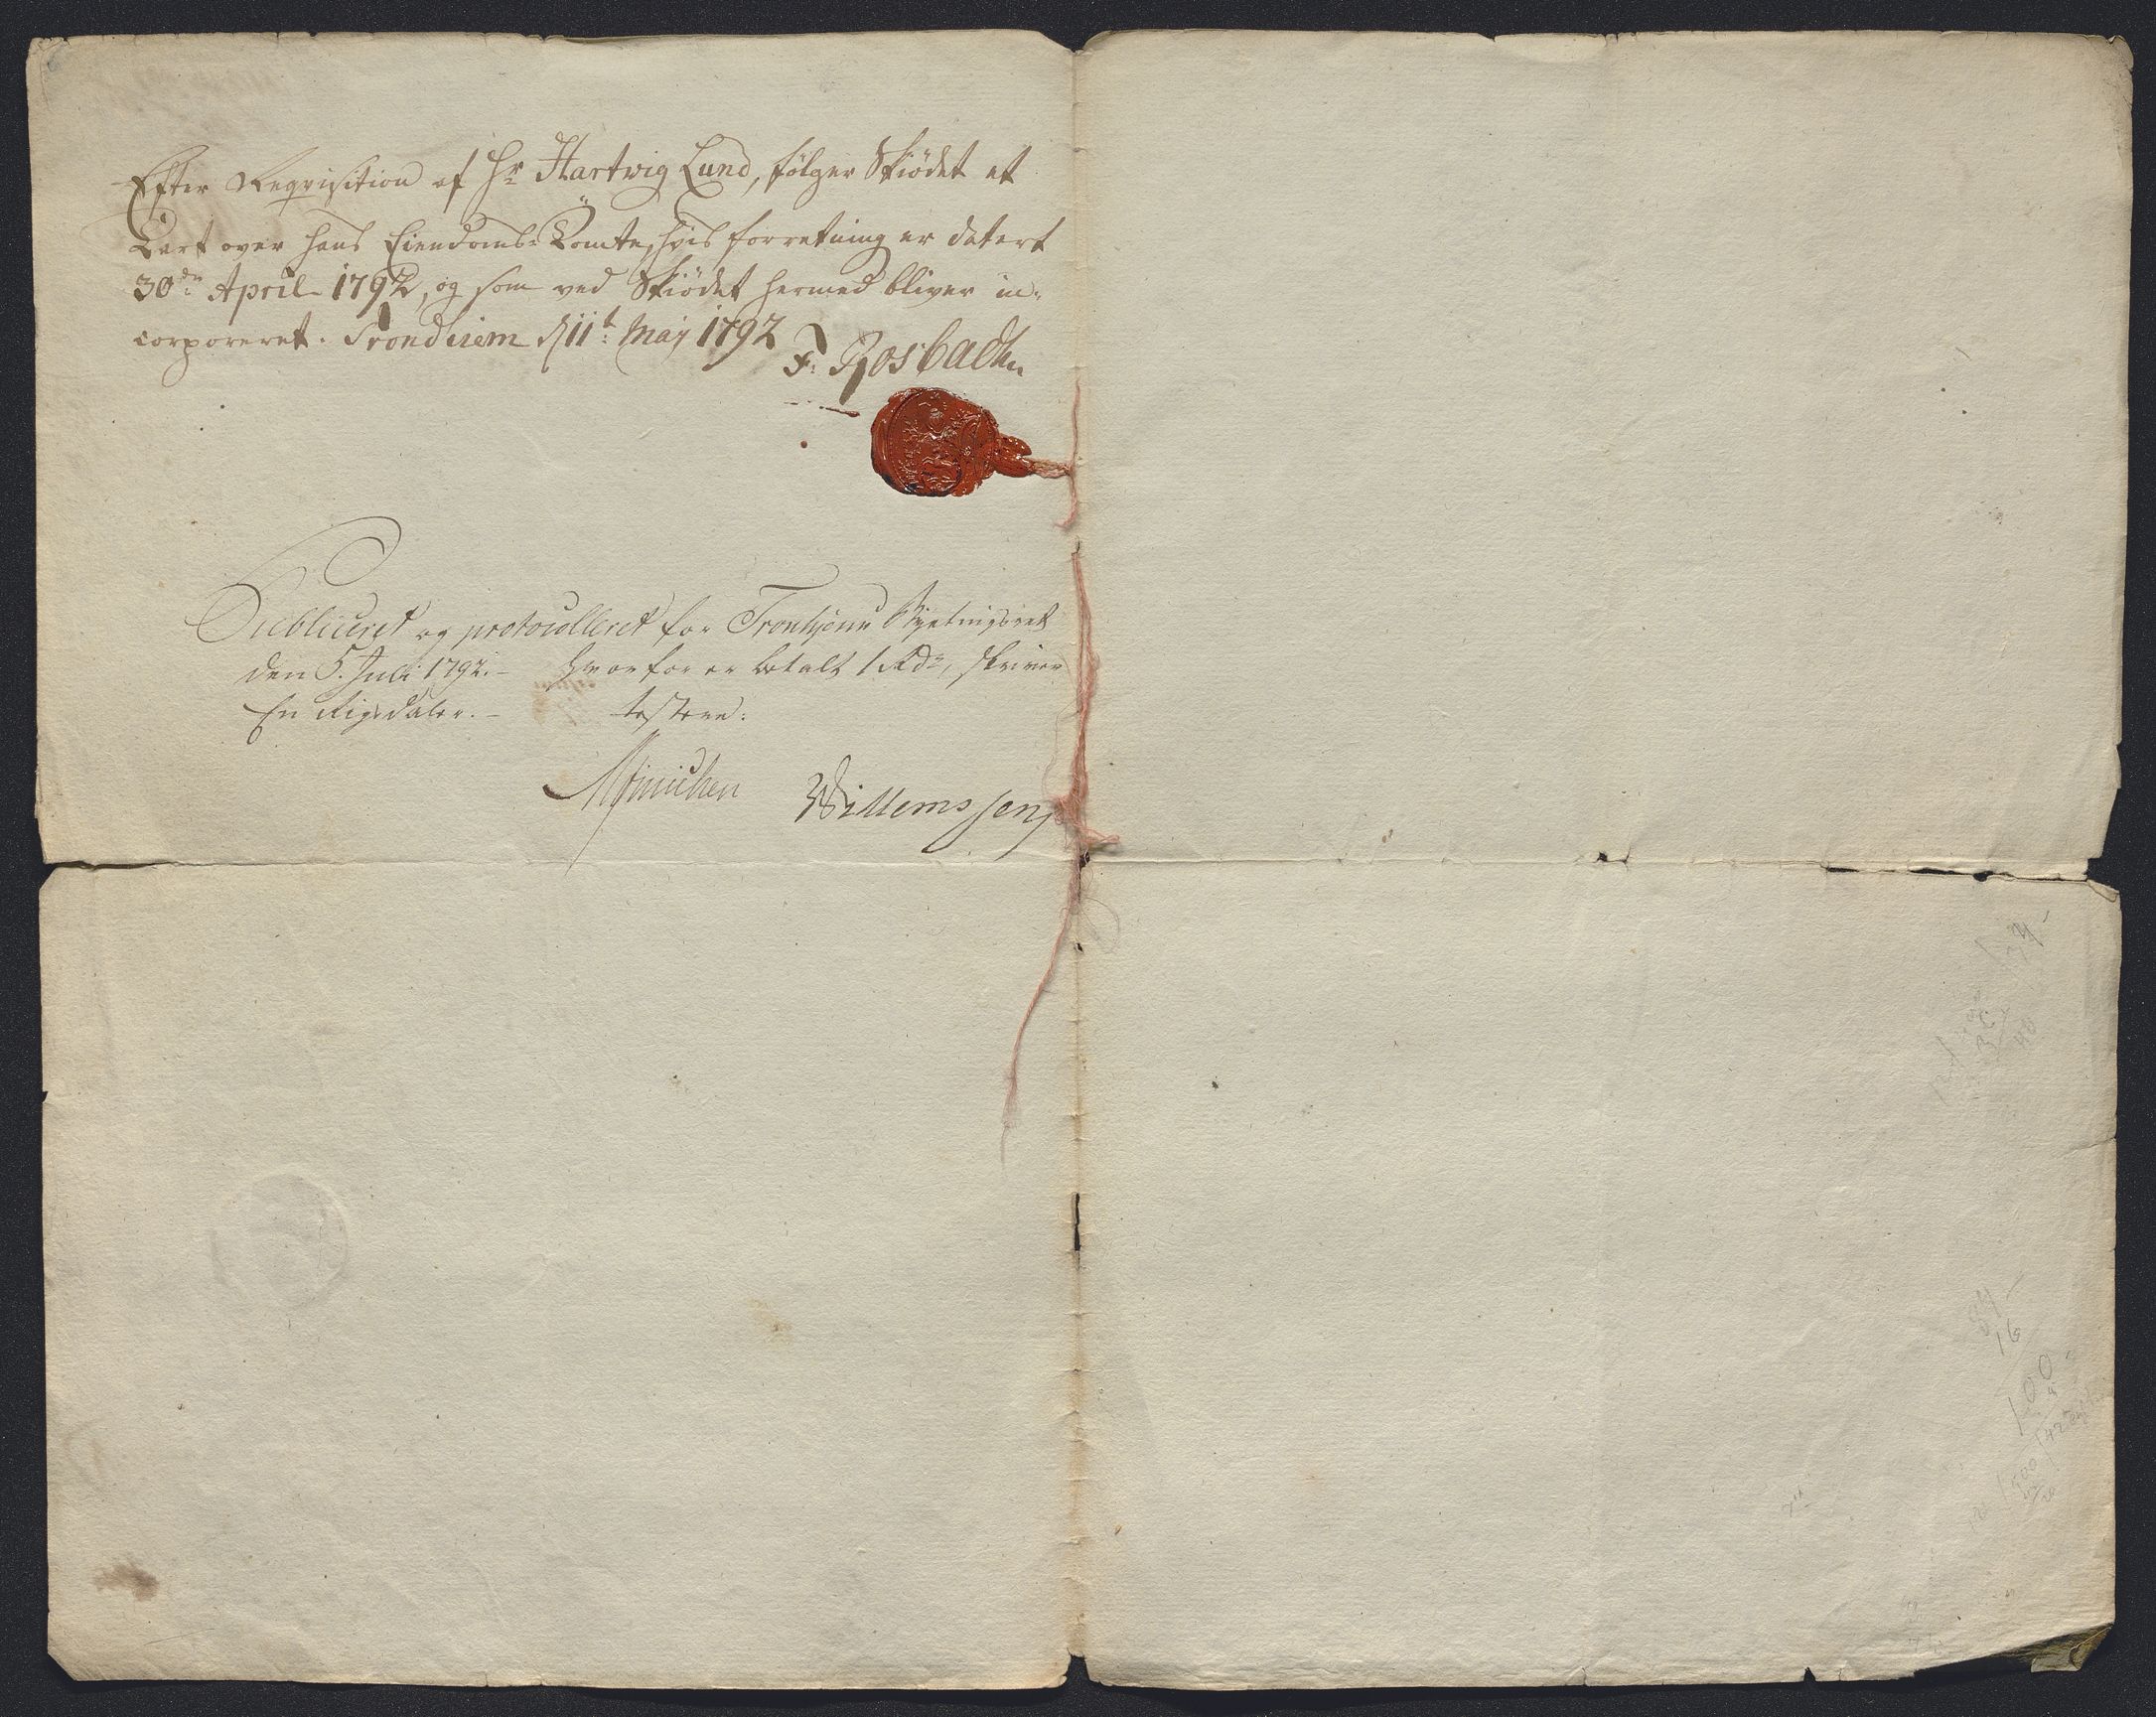 Efter Reqvisition af Hr Hartvig Lund, følger Skiødet et
Cart over hans Eiendoms-Tomte, hvis forretning er datert
30de April 1792, og som ved Skiödet hermed bliver in-
corporeret. Trondhiem d 11t May 1792
F: Rosbach
Publiceret og protocolleret for Tronhjems Byetingsret
den 5. Juli 1792. - Hvorfor er betalt 1 Rdr, skriver
En Rigsdaler. - testere:
Münichen Willemssen
84 -
16
100